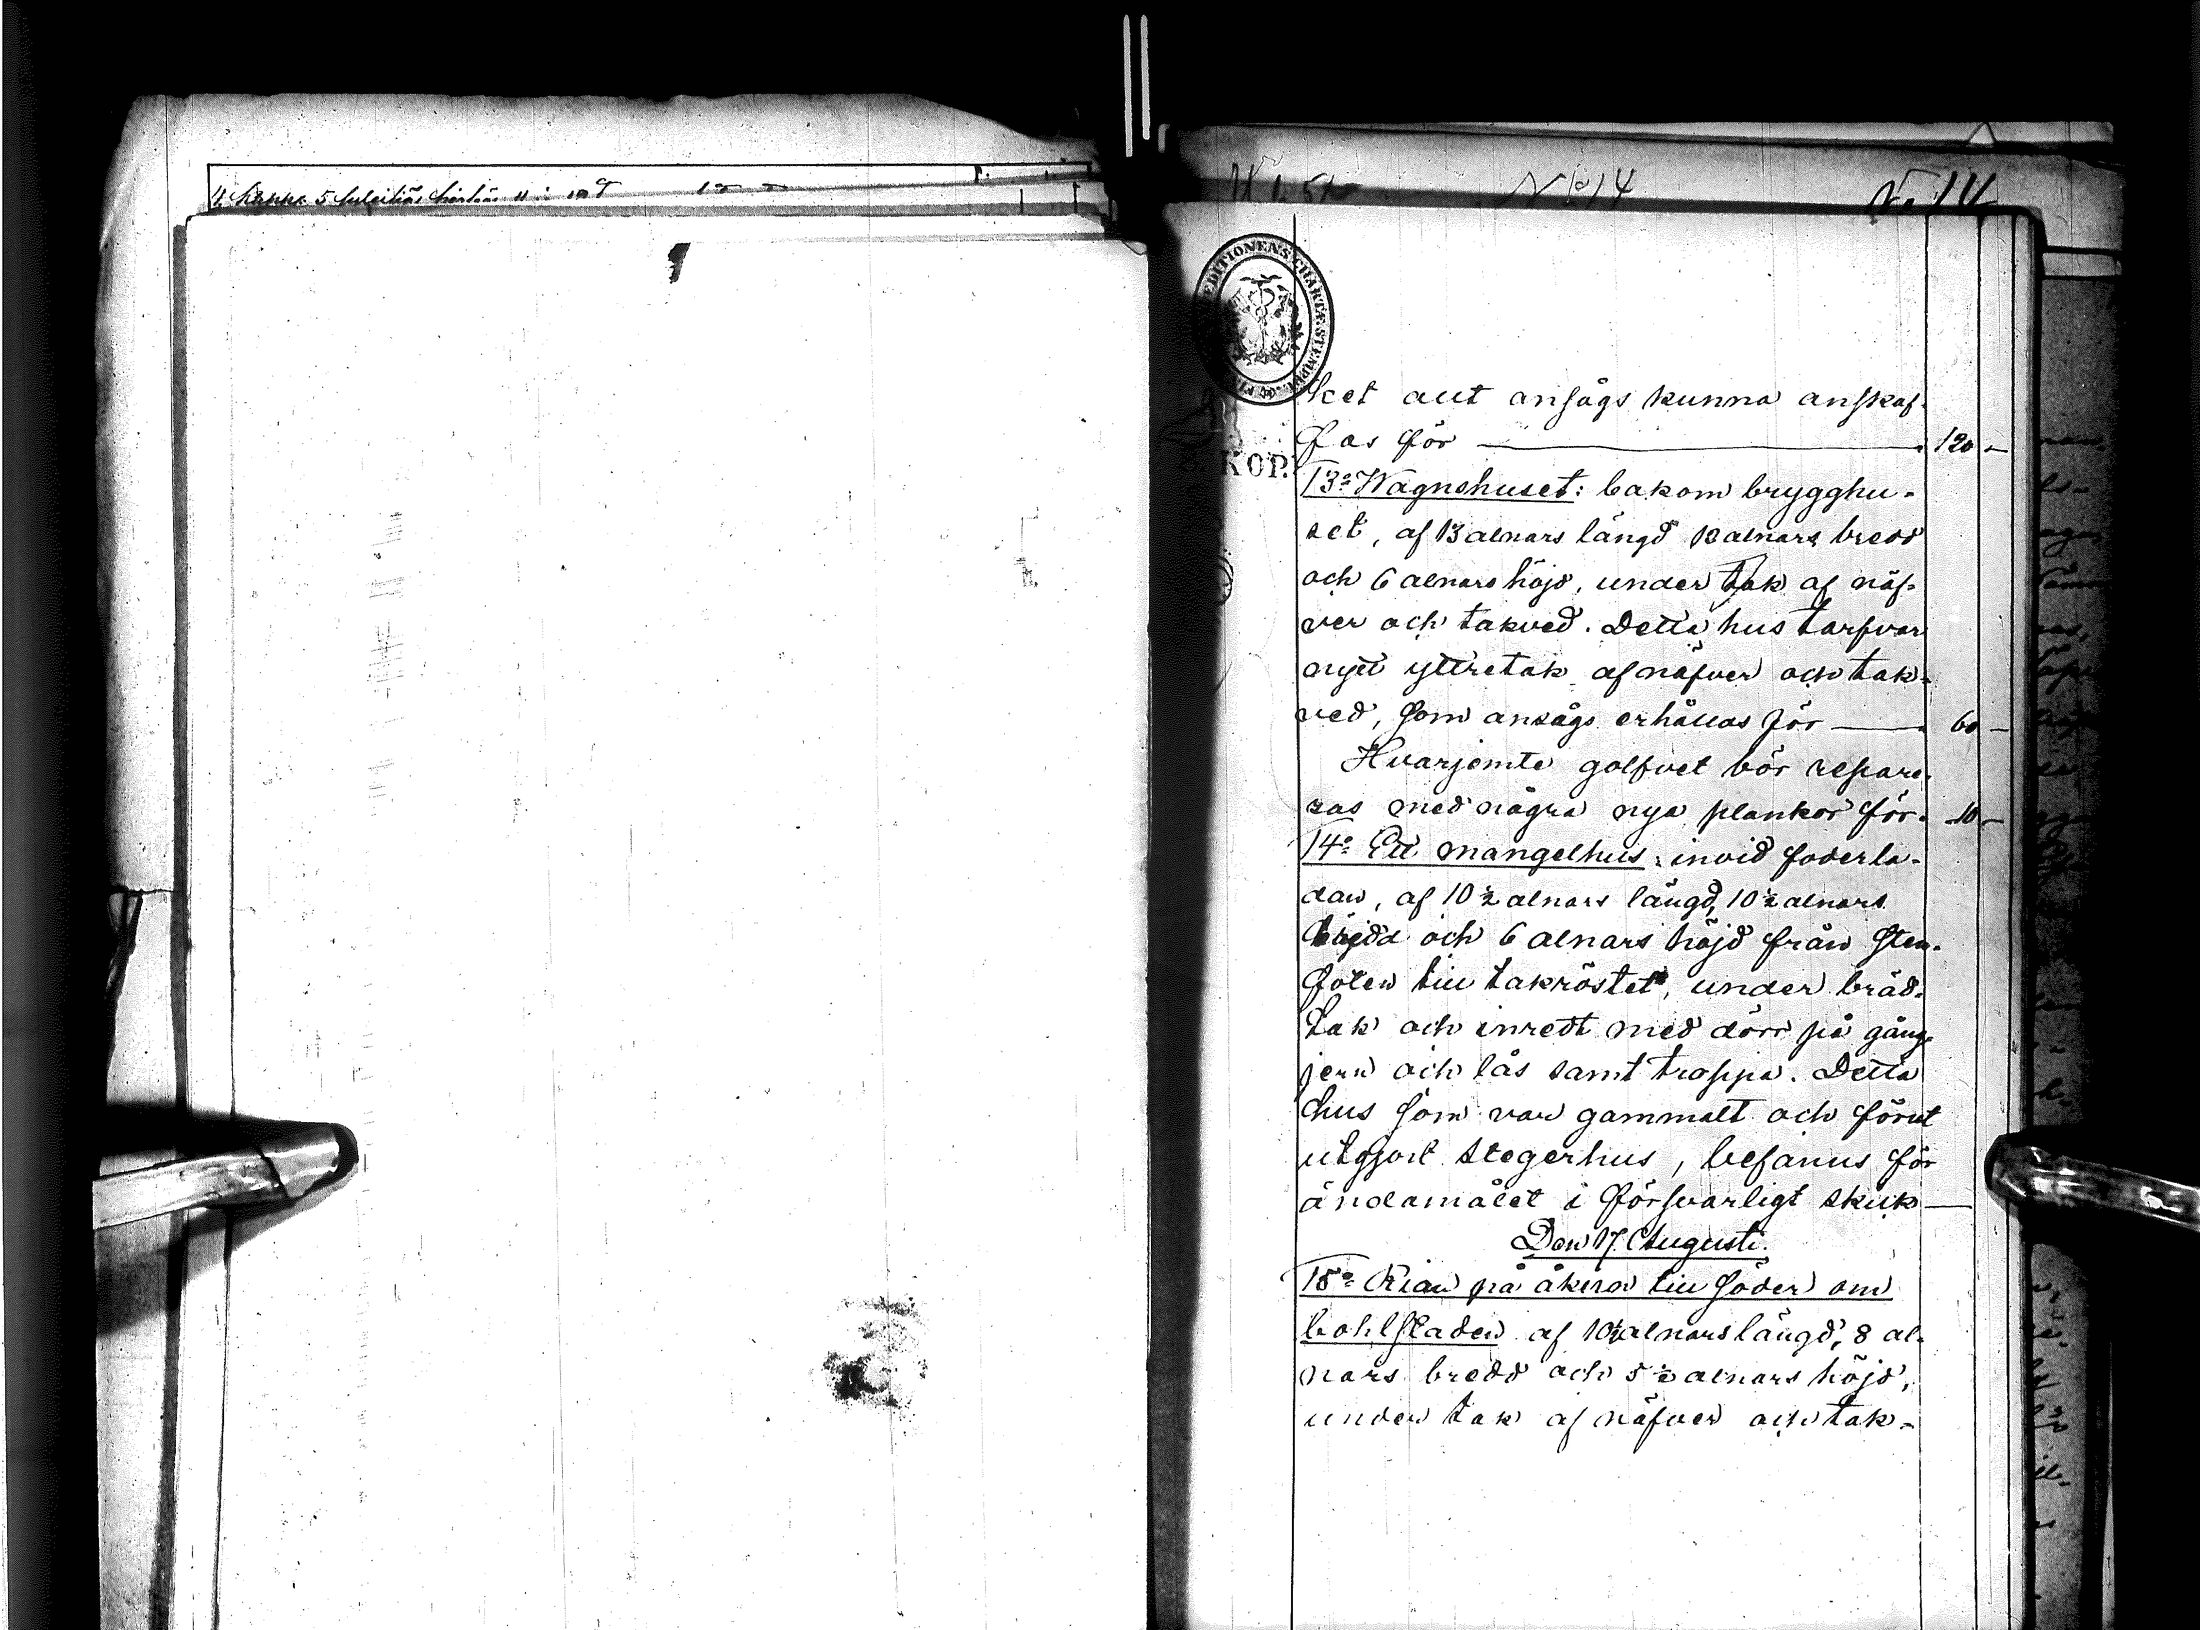 N:o 14
No 14
EDITIONENS CHARTÆ STEMPEL
KOP.
ket allt ansågs kunna anskaf-
fas för — 120 —
13:o Wagnshuset: bakom brygghu-
set, af 13 alnars längd 12 alnars bredd
och 6 alnars höjd, under tak af näf-
ver och takved. Detta hus tarfvar
nytt yttretak af näfver och tak-
ved, som ansågs erhållas för — 60 —
Hvarjemte golfvet bör repare-
ras med några nya plankor för. 10 —
14:o Ett mangelhus: invid foderla-
dan, af 10 ½ alnars längd, 10 ½ alnars
bredd och 6 alnars höjd från sten-
foten till takröstet, under bräd-
tak och inredt med dörr på gång-
jern och lås samt trappa. Detta
hus som var gammalt och förut
utgjort stegerhus, befanns för
ändamålet i försvarligt skick —
Den 17 Augusti.
15:o Rian på åkern till söder om
bohlstaden af 10½ alnars längd, 8 al-
nars bredd och 5 ½ alnars höjd,
under tak af näfver och tak-